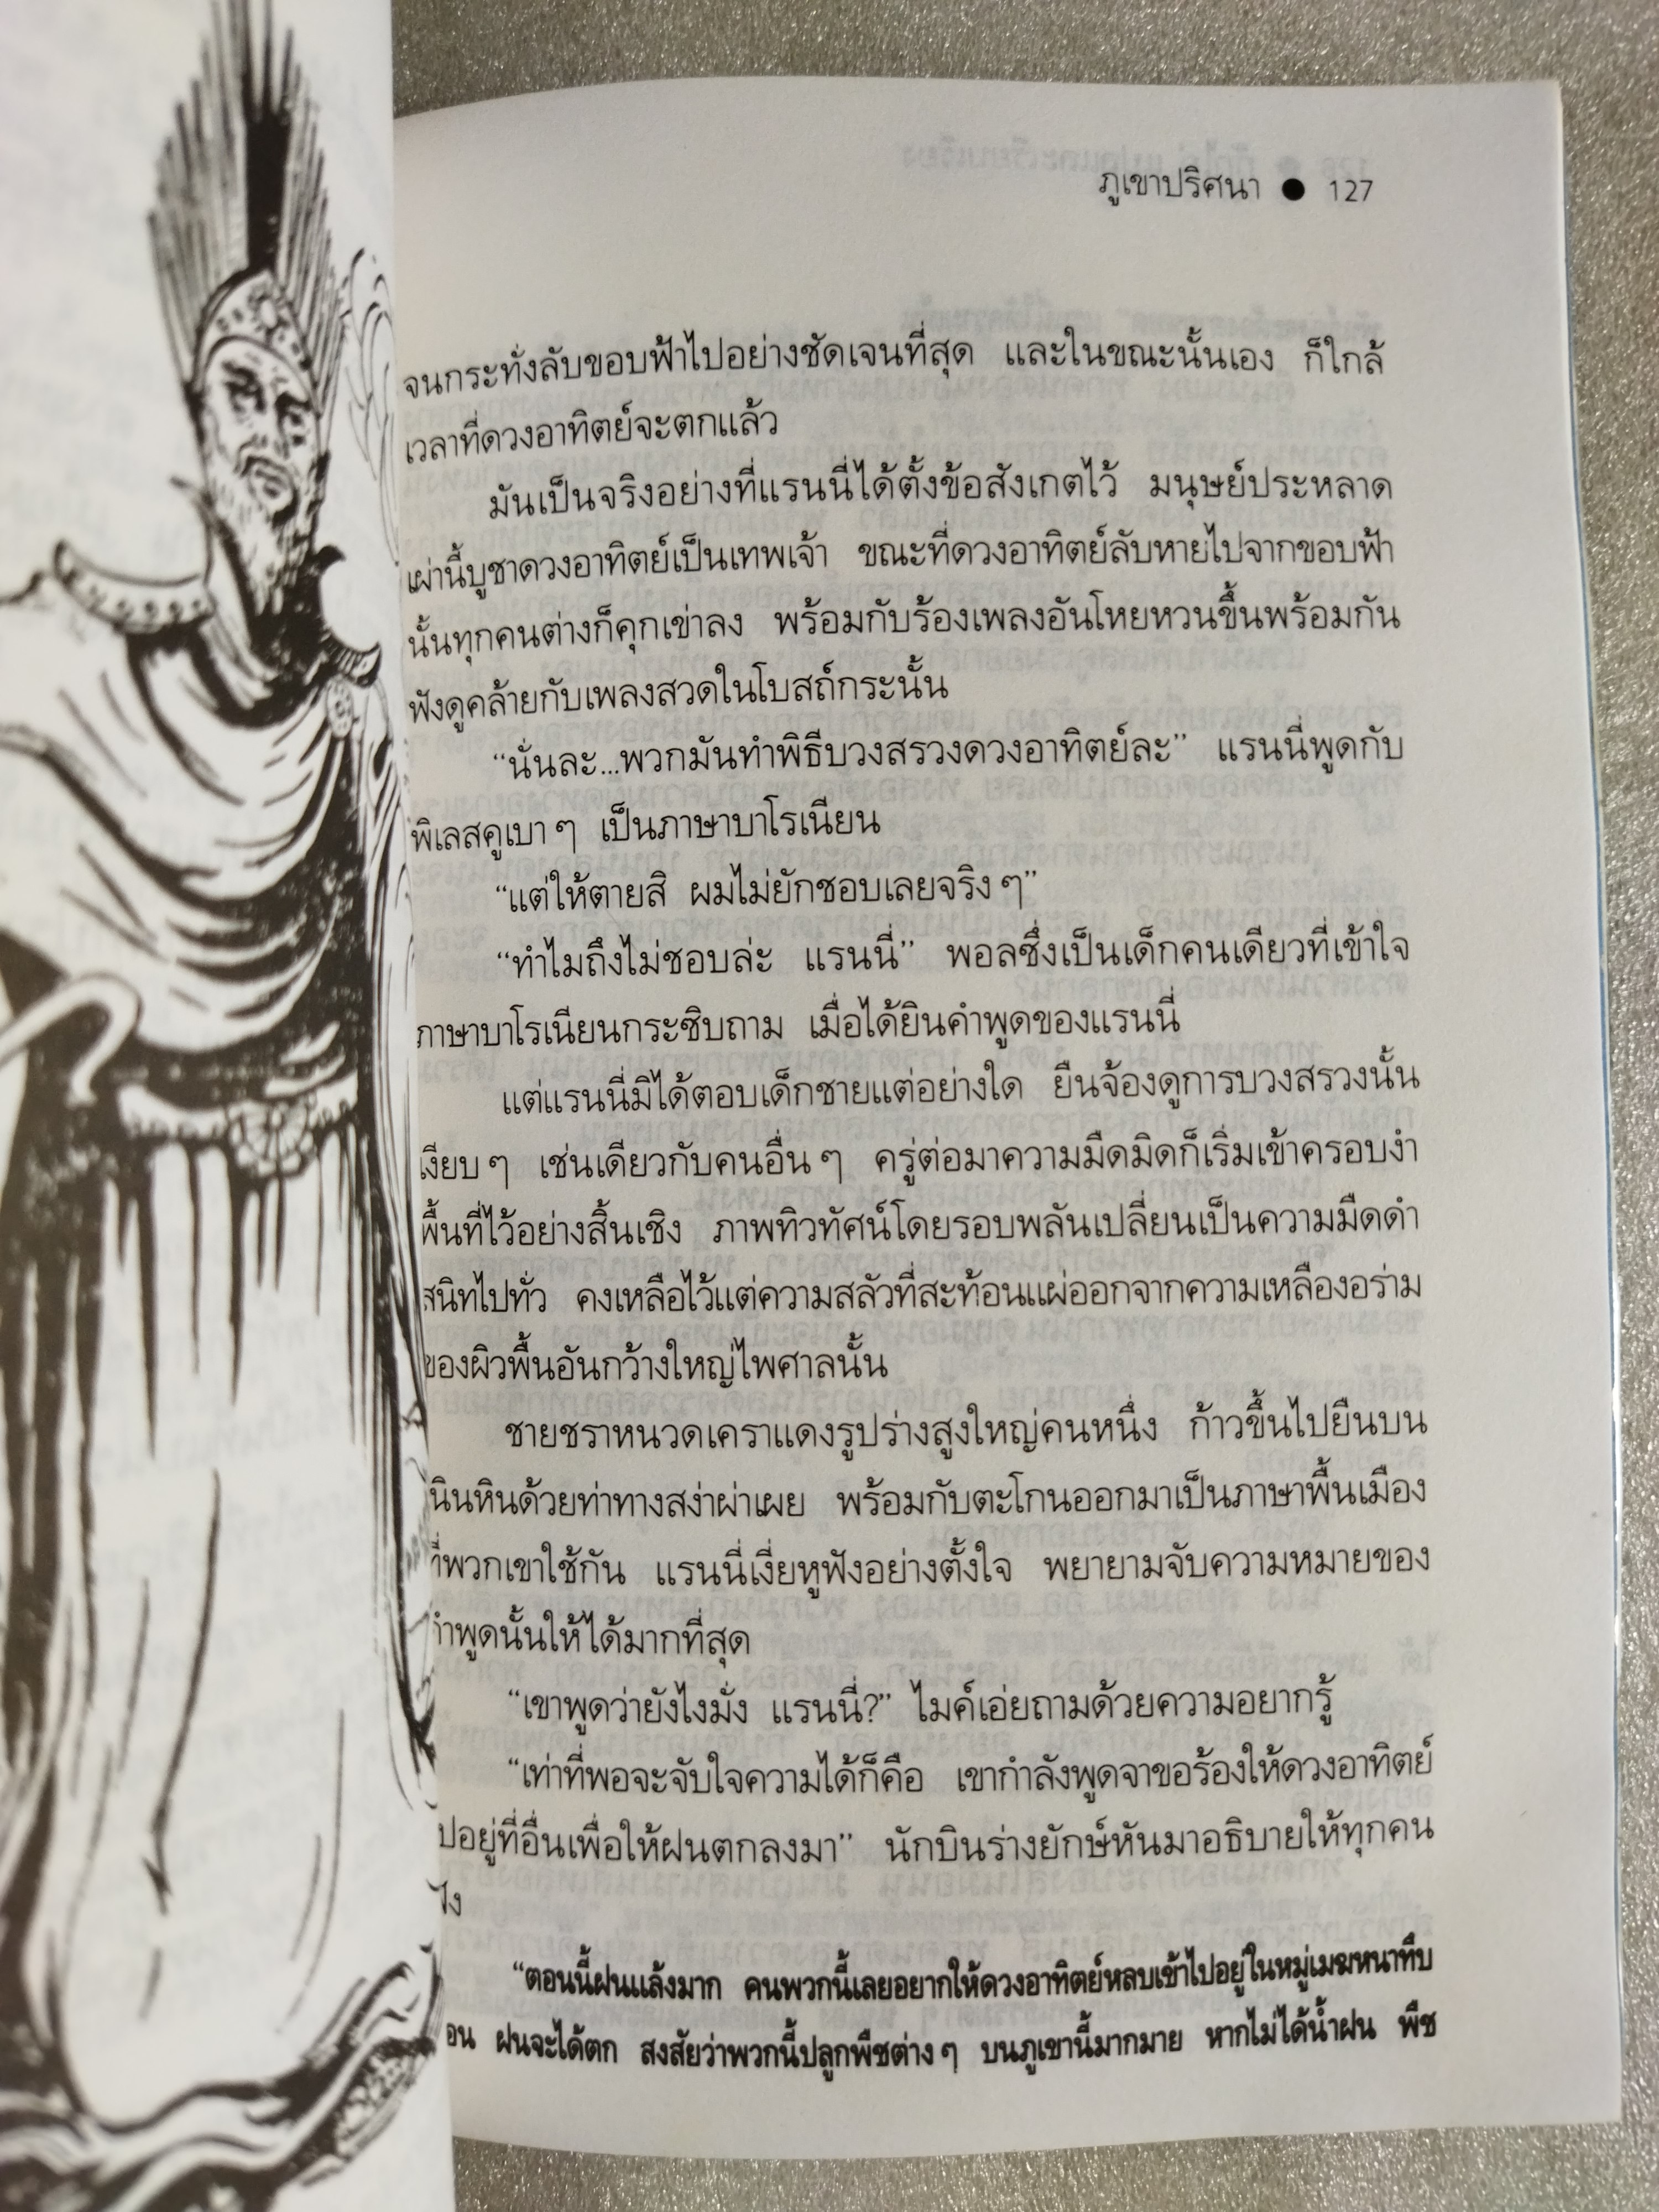 ภูเขาปริศนา ● 127
จนกระทั่งลับขอบฟ้าไปอย่างชัดเจนที่สุด และในขณะนั้นเอง ก็ใกล้
เวลาที่ดวงอาทิตย์จะตกแล้ว
มันเป็นจริงอย่างที่แรนนี่ได้ตั้งข้อสังเกตไว้ มนุษย์ประหลาด
เผ่านี้บูชาดวงอาทิตย์เป็นเทพเจ้า ขณะที่ดวงอาทิตย์ลับหายไปจากขอบฟ้า
นั้นทุกคนต่างก็คุกเข่าลง พร้อมกับร้องเพลงอันโหยหวนขึ้นพร้อมกัน
ฟังดูคล้ายกับเพลงสวดในโบสถ์กระนั้น
“นั่นละ...พวกมันทำพิธีบวงสรวงดวงอาทิตย์ละ” แรนนี่พูดกับ
พิเลสคูเบา ๆ เป็นภาษาบาโรเนียน
“แต่ให้ตายสิ ผมไม่ยักชอบเลยจริง ๆ”
“ทำไมถึงไม่ชอบล่ะ แรนนี่” พอลซึ่งเป็นเด็กคนเดียวที่เข้าใจ
ภาษาบาโรเนียนกระซิบถาม เมื่อได้ยินคำพูดของแรนนี่
แต่แรนนี่มิได้ตอบเด็กชายแต่อย่างใด ยืนจ้องดูการบวงสรวงนั้น
เงียบ ๆ เช่นเดียวกับคนอื่น ๆ ครู่ต่อมาความมืดมิดก็เริ่มเข้าครอบงำ
พื้นที่ไว้อย่างสิ้นเชิง ภาพทิวทัศน์โดยรอบพลันเปลี่ยนเป็นความมืดดำ
สนิทไปทั่ว คงเหลือไว้แต่ความสลัวที่สะท้อนแผ่ออกจากความเหลืองอร่าม
ของผิวพื้นอันกว้างใหญ่ไพศาลนั้น
ชายชราหนวดเคราแดงรูปร่างสูงใหญ่คนหนึ่ง ก้าวขึ้นไปยืนบน
นินหินด้วยท่าทางสง่าผ่าเผย พร้อมกับตะโกนออกมาเป็นภาษาพื้นเมือง
ที่พวกเขาใช้กัน แรนนี่เงี่ยหูฟังอย่างตั้งใจ พยายามจับความหมายของ
คำพูดนั้นให้ได้มากที่สุด
“เขาพูดว่ายังไงมั่ง แรนนี่?” ไมค์เอ่ยถามด้วยความอยากรู้
“เท่าที่พอจะจับใจความได้ก็คือ เขากำลังพูดจาขอร้องให้ดวงอาทิตย์
ปอยู่ที่อื่นเพื่อให้ฝนตกลงมา” นักบินร่างยักษ์หันมาอธิบายให้ทุกคน
“ตอนนี้ฝนแล้งมาก คนพวกนี้เลยอยากให้ดวงอาทิตย์หลบเข้าไปอยู่ในหมู่เมฆหนาทึบ
อน ฝนจะได้ตก สงสัยว่าพวกนี้ปลูกพืชต่าง ๆ บนภูเขานี้มากมาย หากไม่ได้น้ำฝน พืช